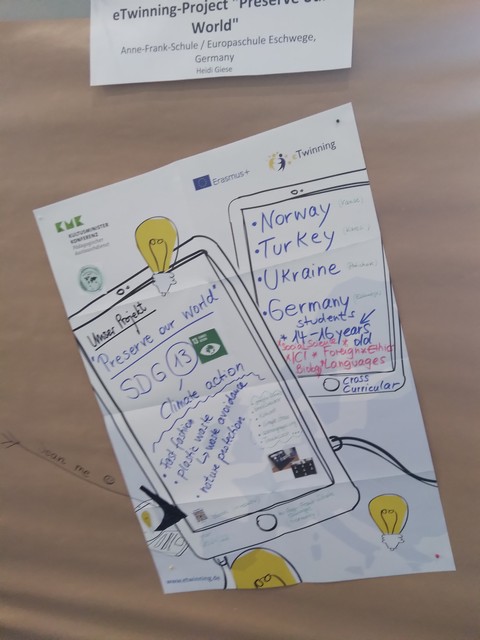 eTwinning-Project "Preserve our
World"
Anne-Frank-Schule / Europaschule Eschwege,
Germany
Heidi Giese
eTwinning
Erasmus+
KMK
KULTUSMINISTER
KONFERENZ
Pädagogischer
Austauschdienst
• Norway
• Turkey
• Ukraine
• Germany
students
* 14-16 years
old
Social Science
MCI * Foreign * Ethics
Biology Languages
Cross
Curricular
Unser Projekt
"Preserve our world"
SDG 13
Climate action
• Fast fashion
• plastic waste
↳ waste avoidance
• nature protection
scan me
www.etwinning.de